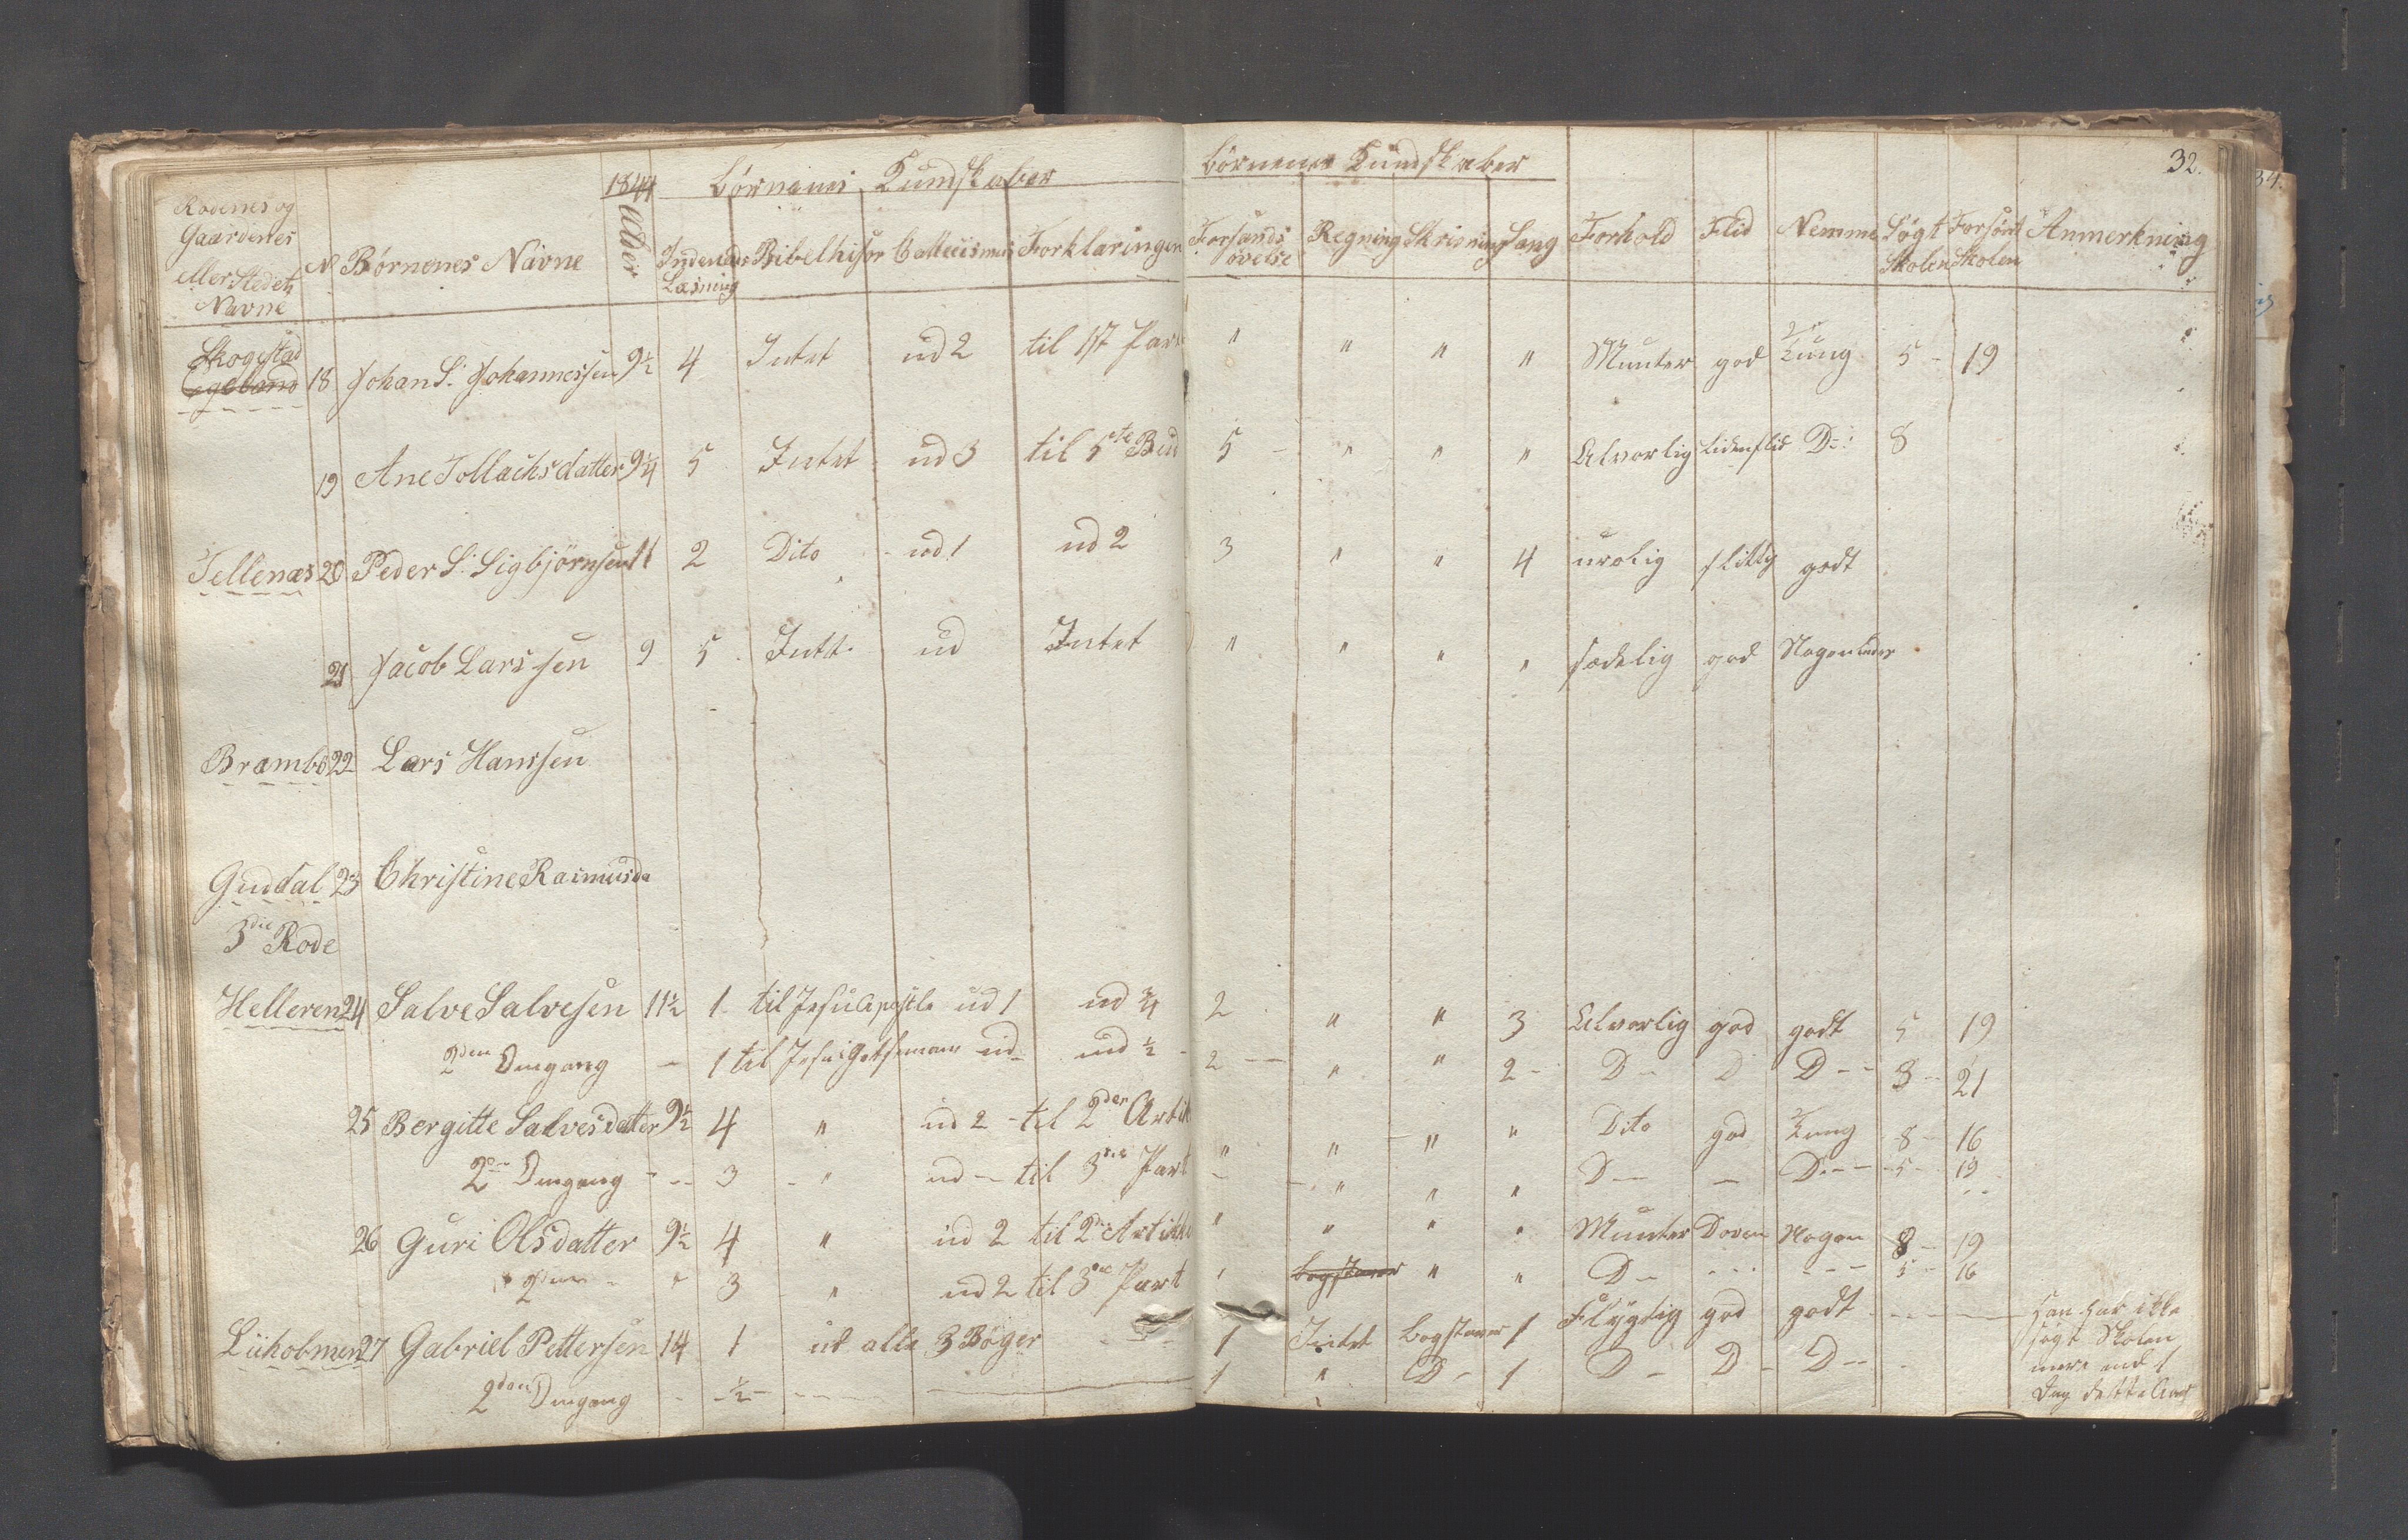 32.
1844 Børnenes Kundskaber Børnenes Kundskaber
Rodenes og Gaardenes eller Stedets Navne N Børnenes Navne Alder Indenads Læsning Bibelhistor Cathecismus Forklaringen Forstands øvelse Regning Skrivning Sang Forhold Flid Nemme Søgt Skolen Forsømt Skolen Anmerkning
Skogstad
Egeland 18 Johan S. Johannessen 9½ 4 Intet ud 2 til 1st Part " " " " Munter god Tung 5 - 19
19 Ane Tollachsdatter 9¼ 5 Intet ud 3 til 5te Bud 5 " " " Alvorlig liden flid D: 8
Tellenæs 20 Peder S. Sigbjörnsen 11 2 Dito ud 1 ud 2 3 " " 4 urolig flittig godt
21 Jacob Larssen 9 5 Intet ud Intet " " " " sædelig god Nogenledes
Brambo 22 Lars Hanssen
Guddal 23 Christine Rasmusda
3die Rode
Helleren 24 Salve Salvesen 11½ 1 til Jesu Apostle ud 1 ud ¾ 2 " " 3 Alvorlig god godt 5 19
2den Omgang - 1 til Jesu i Getsemane ud ud ½ 2 " " 2 - D - D D - - 3 - 21
25 Bergitte Salvesdatter 9½ 4 " ud 2 - til 2den Artik " " " " Dito god Tung 8 - 16
2den Omgang - 3 - " ud - til 3die Part - " " " D - - D - - 5 - 19
26 Guri Olsdatter 9½ 4 " ud 2 til 2den Artikel " " " " Munter Doven Nogen 8 - 19
2den - " 3 " ud 2 til 3die Part " Bogstaver " " D - - - - - - - 5 - 16
Liikolmen 27 Gabriel Pettersen 14 1 ut alle 3 Bøger 1 Intet Bogstaver 1 Flygtig god godt - - - Han har ikke
søgt Skolen
mere end 1
Dag dette Aar
2den Omgang - ½ - - - 1 " D - 1 D - D - D - -